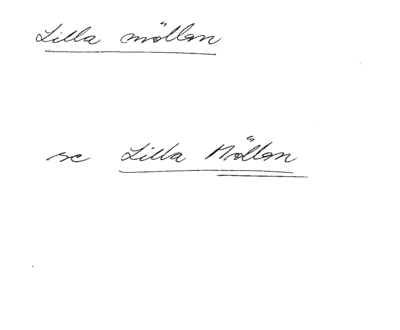 Lilla möllan
se Lilla Möllan